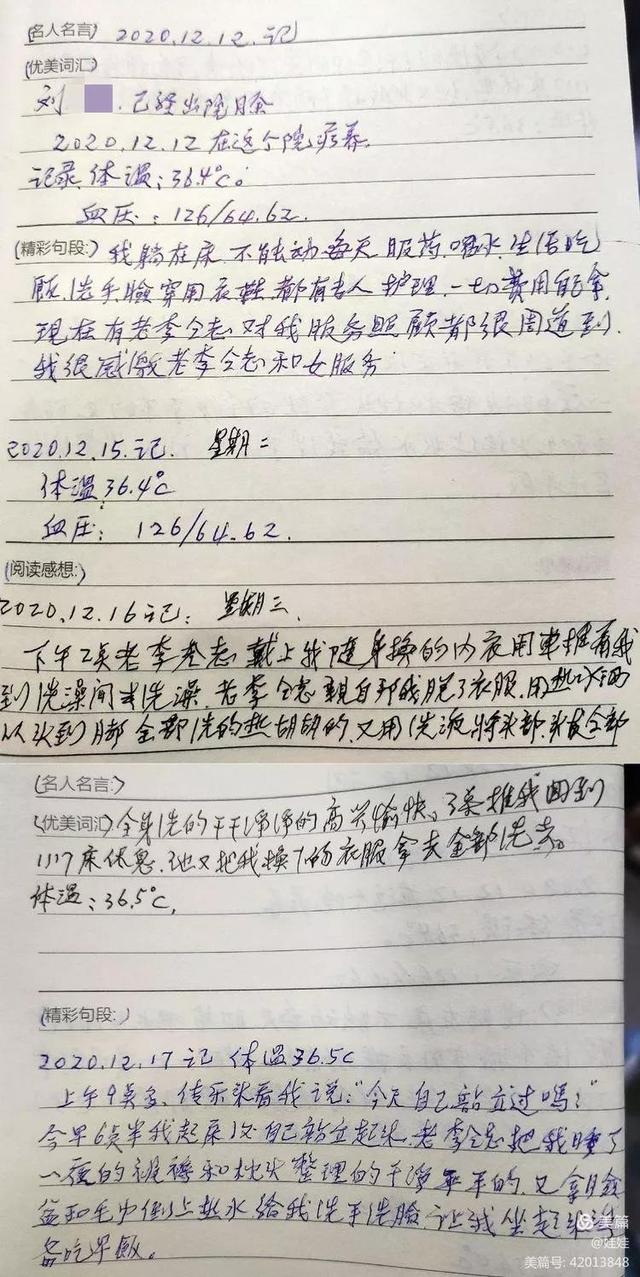 (名人名言) 2020.12.12.记
(优美词汇)
刘 .已经出院
2020.12.12在这个院疗养.
记录.体温:36.4°c。
血压:126/64.62.
(精彩句段:) 我躺在床.不能动每天服药.喝水.生活吃
饭.洗手脸穿用衣鞋都有专人护理.一切费用能拿.
现在有老李仝志对我服务照顾都很周道到.
我很感激老李仝志和女服务
2020.12.15.记. 星期二
体温36.4°c
血压: 126/64.62.
(阅读感想:)
2020.12.16记: 星期三.
下午2点老李仝志戴上我随身换的内衣用车推着我
到洗澡间去洗澡.老李仝志亲自部我脱了衣服.用热水
从头到脚全部洗的热胡胡的.又用洗液将头部.头发全部
(名人名言:)
(优美词汇) 全身洗的干干净净的高兴愉快。3点推我回到
1117床休息.他又把我换下的衣服拿去全部洗去。
体温:36.5°C,
(精彩句段:)
2020.12.17记 体温36.5c
上午9点多,传乐来看我说:“今天自己站立过吗?”
今早6点半我起床1次自己站立起来.老李仝志把我睡了
一夜的被褥和枕头整理的干净平平的.又拿脸
盆和毛巾倒上热水给我洗手洗脸让我坐起来
备吃早飯。
美篇
@娃娃
美篇号: 42013848